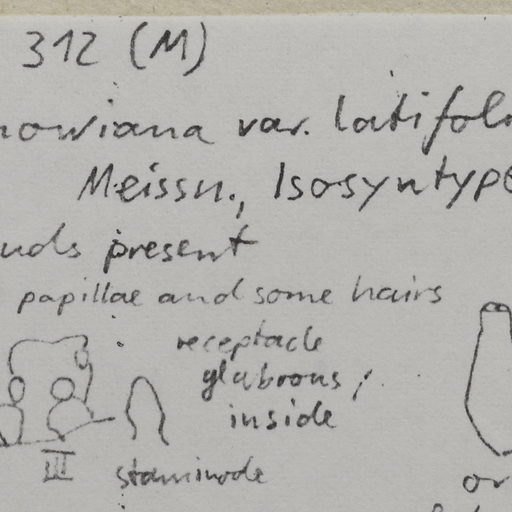 312 (M)
nowiana var. latifol
Meissn., Isosyntype
uds present
papillae and some hairs
receptacle
glabrous,
inside
III staminode
or